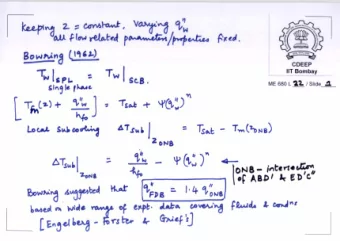 Keeping z = constant, varying q"w
all flow related parameters/properties fixed.
Bowring (1962)
CDEEP
IIT Bombay
ME 680 L 22 / Slide 2
Tw|SPL = Tw|SCB.
single phase
[Tm(z) + q"w/hfo] = Tsat + Ψ(q"w)^n
Local Subcooling ΔTsub|zONB = Tsat - Tm(zONB)
ΔTsub|zONB = q"w/hfo - Ψ(q"w)^n
ONB - intersection
of ABD' & ED'C"
Bowring suggested that q"FDB = 1.4 q"ONB
based on wide range of expt. data covering fluids & condns
[Engelberg-Forster & Grief's]